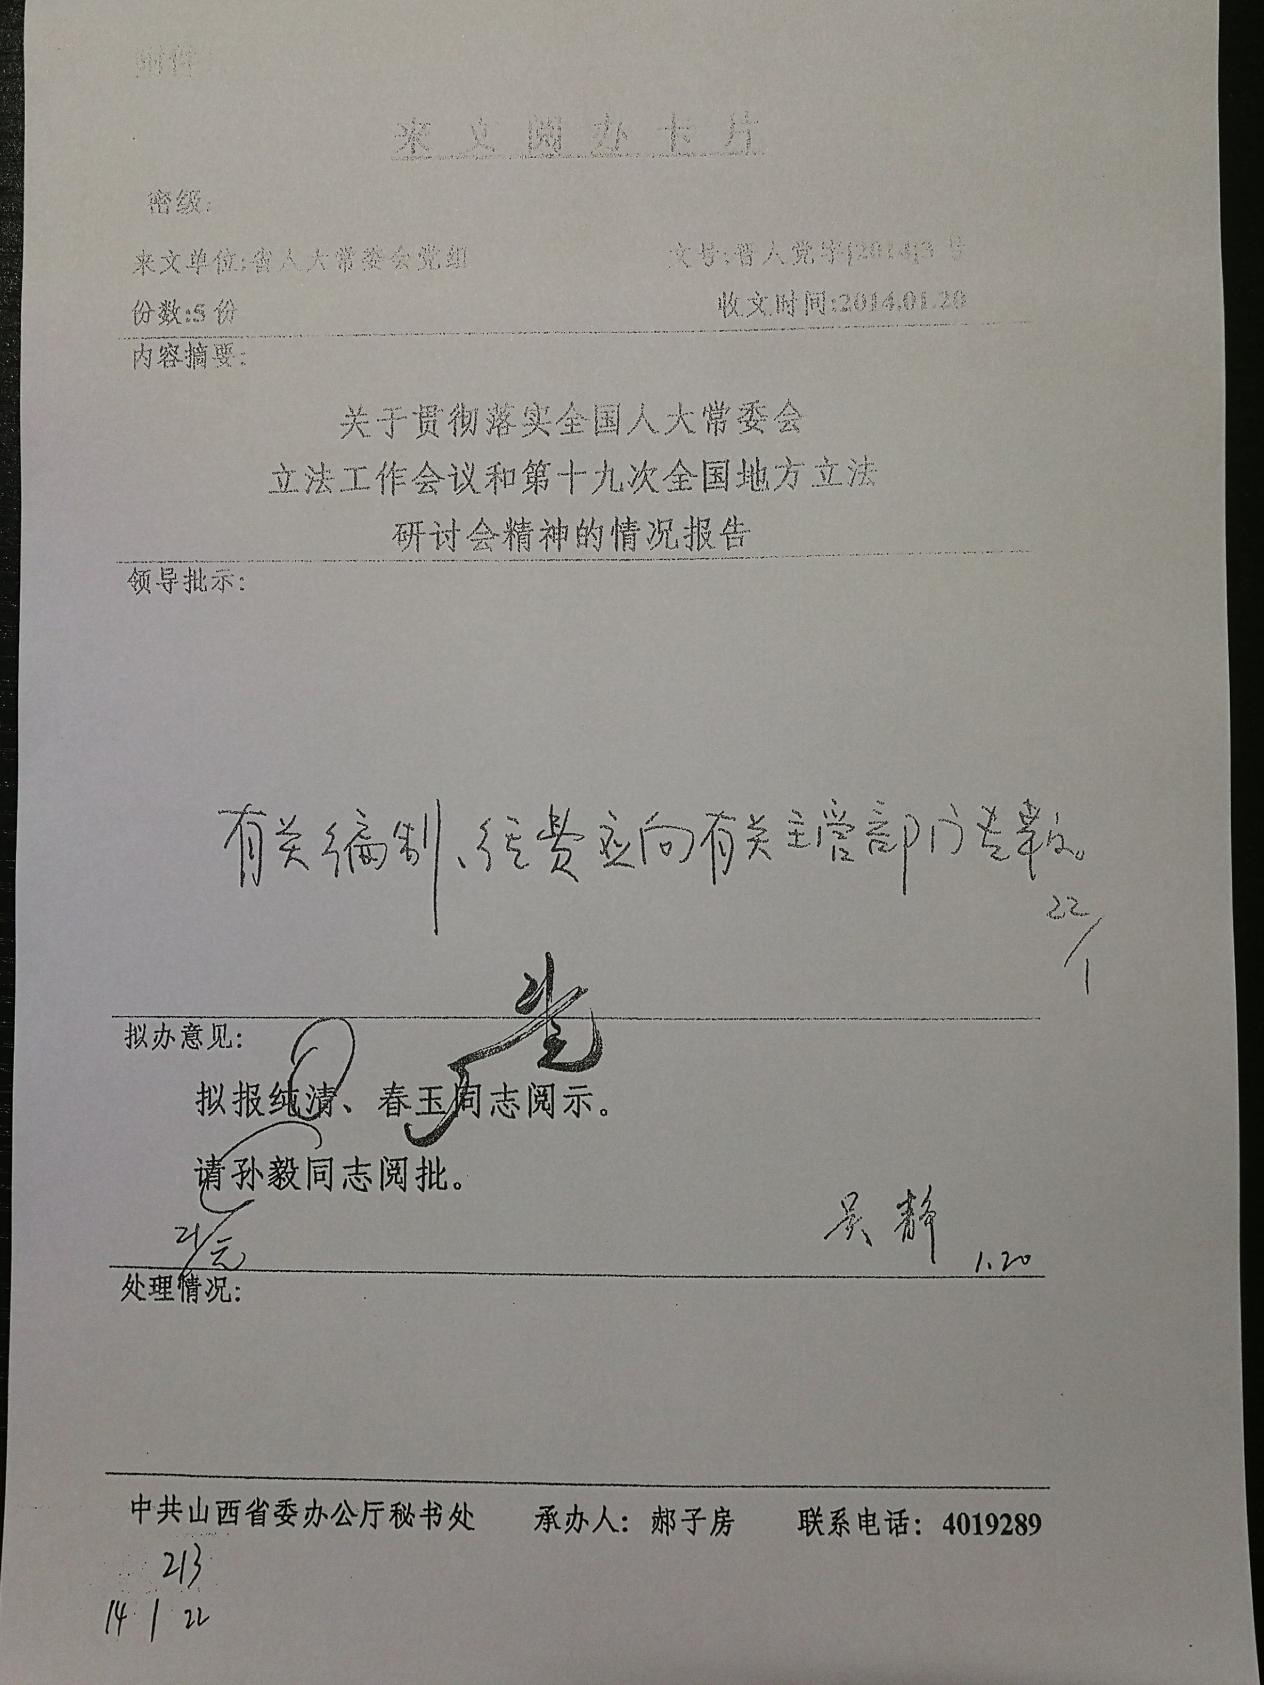 附件
来文阅办卡片
密级:
来文单位:省人大常委会党组 文号:晋人党字[2014]3号
份数:5份 收文时间:2014.01.20
内容摘要:
关于贯彻落实全国人大常委会
立法工作会议和第十九次全国地方立法
研讨会精神的情况报告
领导批示:
有关编制、经费应向有关主管部门
22/1
拟办意见:
拟报纯清、春玉同志阅示。
请孙毅同志阅批。
21/元
吴静 1.20
处理情况:
中共山西省委办公厅秘书处 承办人: 郝子房 联系电话: 4019289
213
14 1 22